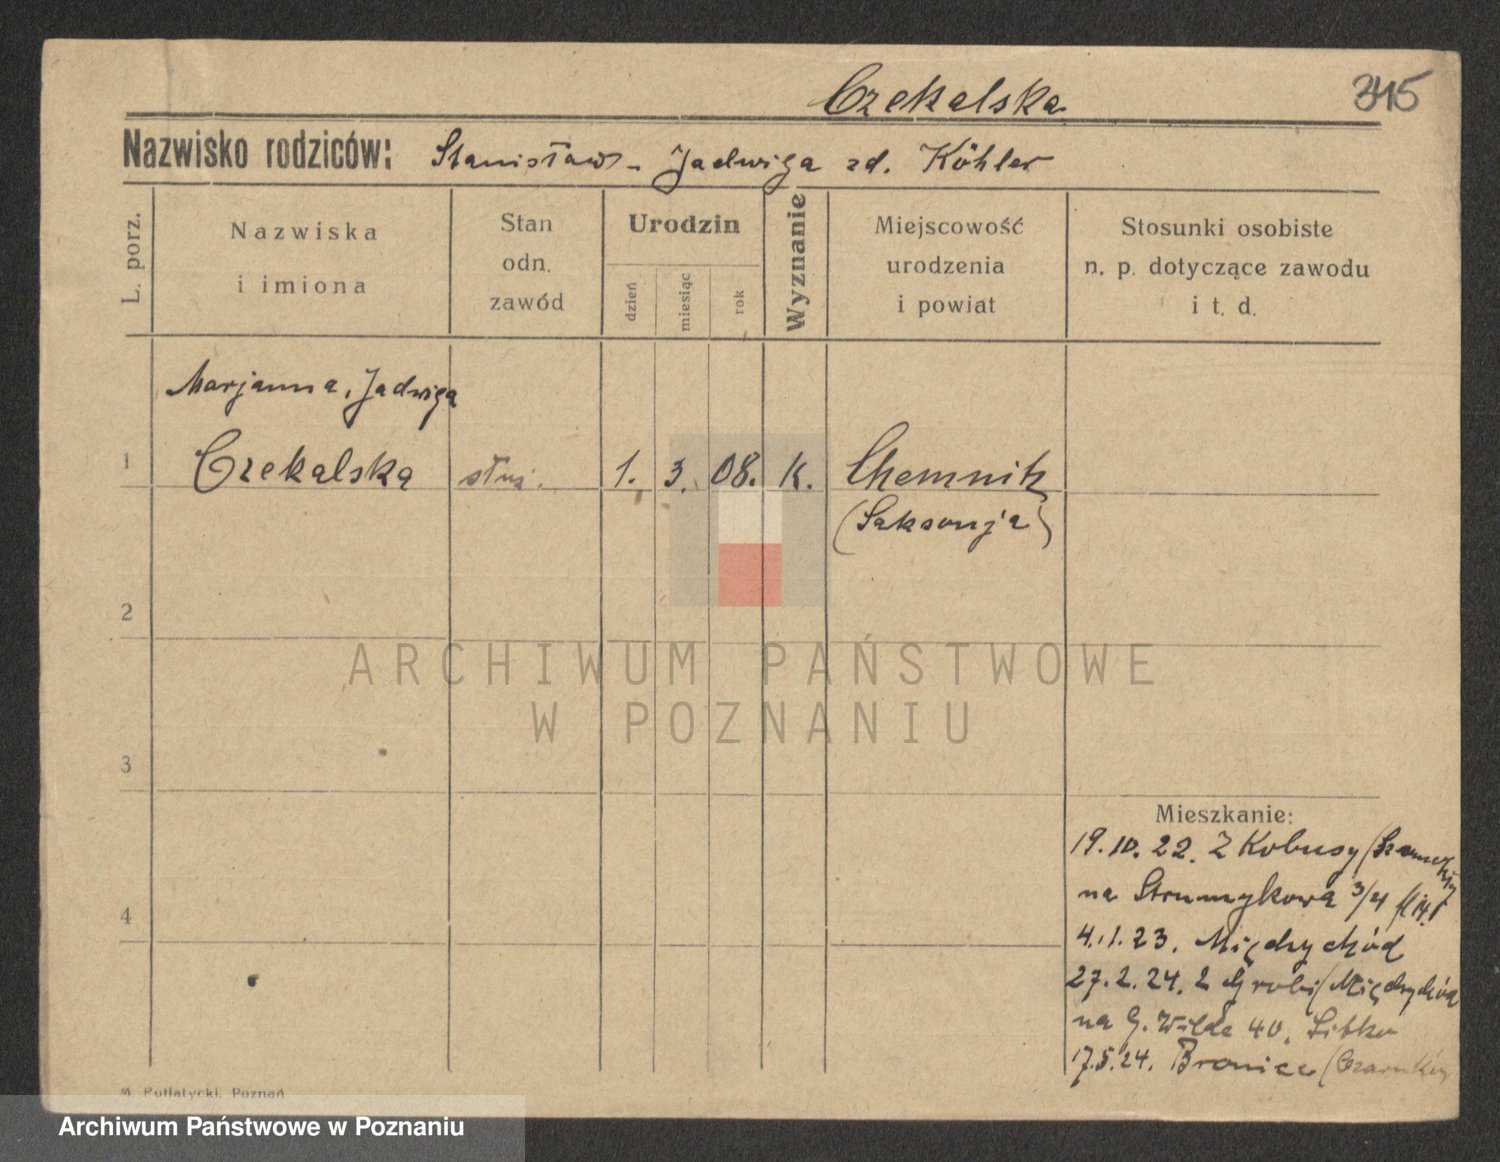 Czekalska
345
Nazwisko rodziców: Stanisław - Jadwiga zd. Köhler
L. porz.
Nazwiska
i imiona
Stan
odn.
zawód
Urodzin
dzień
miesiąc
rok
Wyznanie
Miejscowość
urodzenia
i powiat
Stosunki osobiste
n. p. dotyczące zawodu
i t. d.
Marjanna, Jadwiga
1 Czekalska służ. 1. 3. 08. K. Chemnitz
(Saksonja)
2
3
4
ARCHIWUM PAŃSTWOWE
W POZNANIU
Mieszkanie:
19.10.22. Z Kobusy
na Strumykowa 3/4
4.1.23. Międzychód
27.2.24. z Grobi (Międzychód
na G. Wilde 40.
17.5.24. Bronice (Czarnków
M. Putiatycki, Poznań
Archiwum Państwowe w Poznaniu